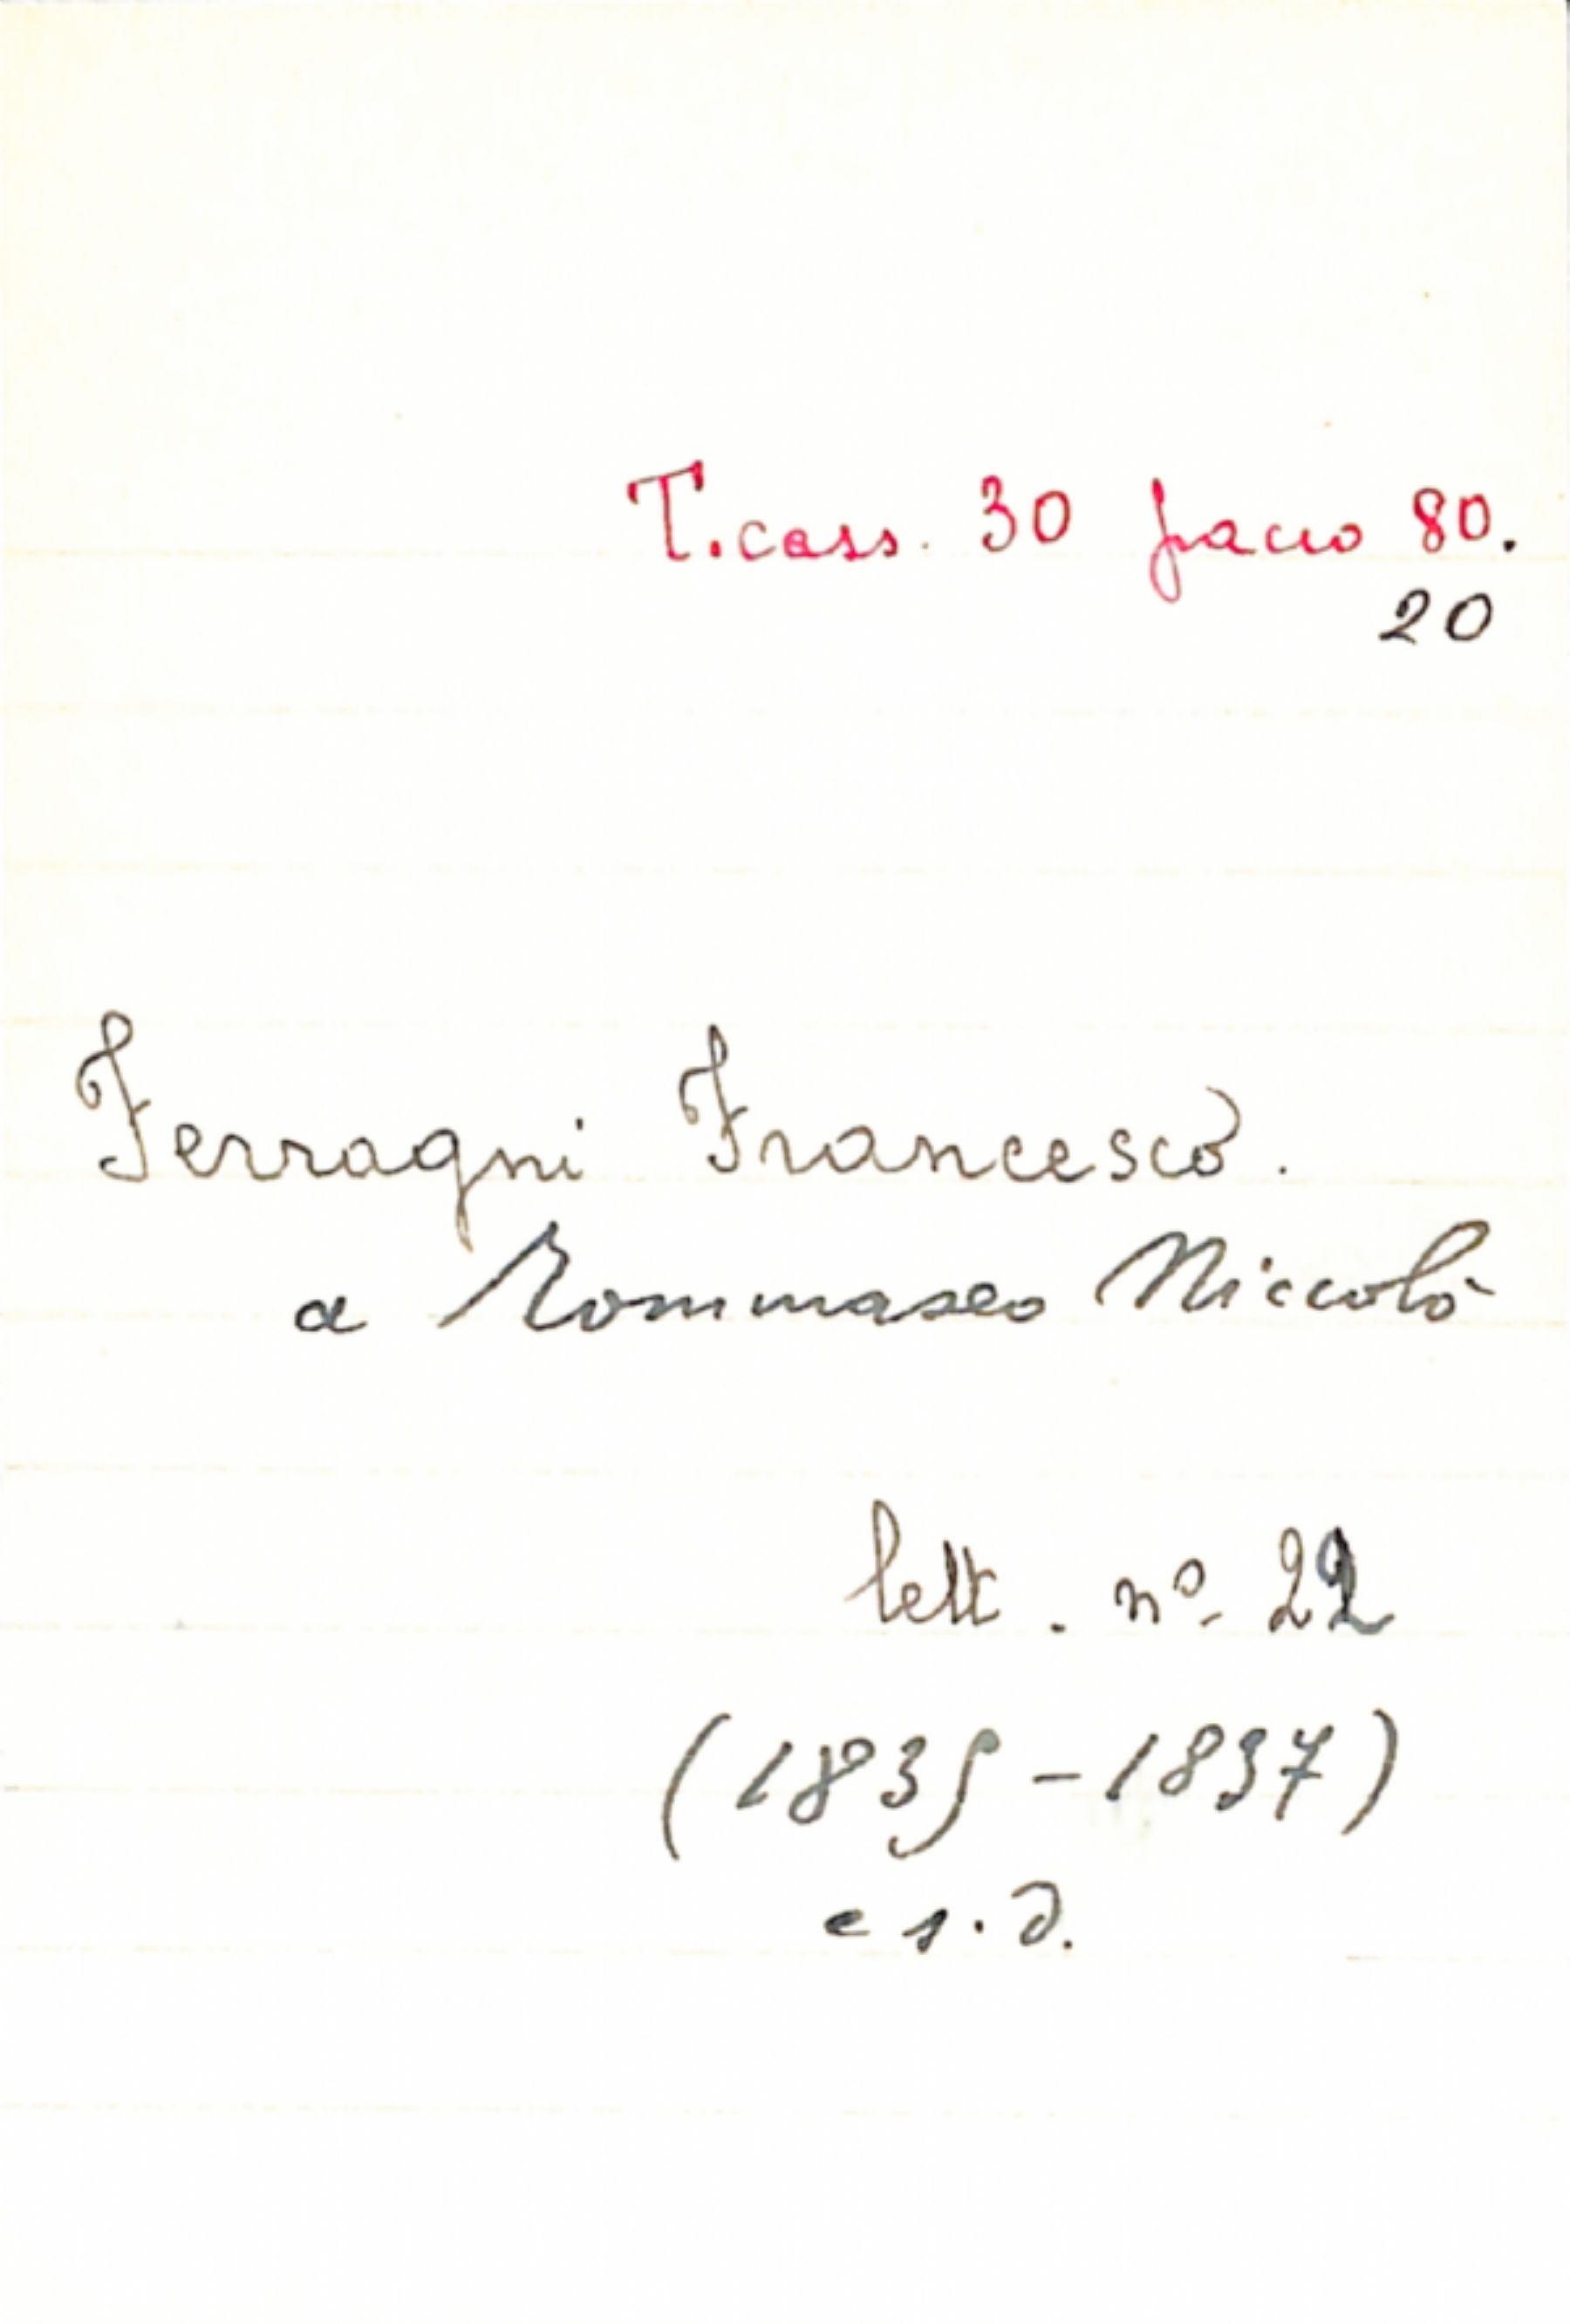 T. cass. 30 pacco 80.
20
Ferragni Francesco.
a Tommaseo Niccolò
lett. nº 22
(1835-1837)
e s. d.